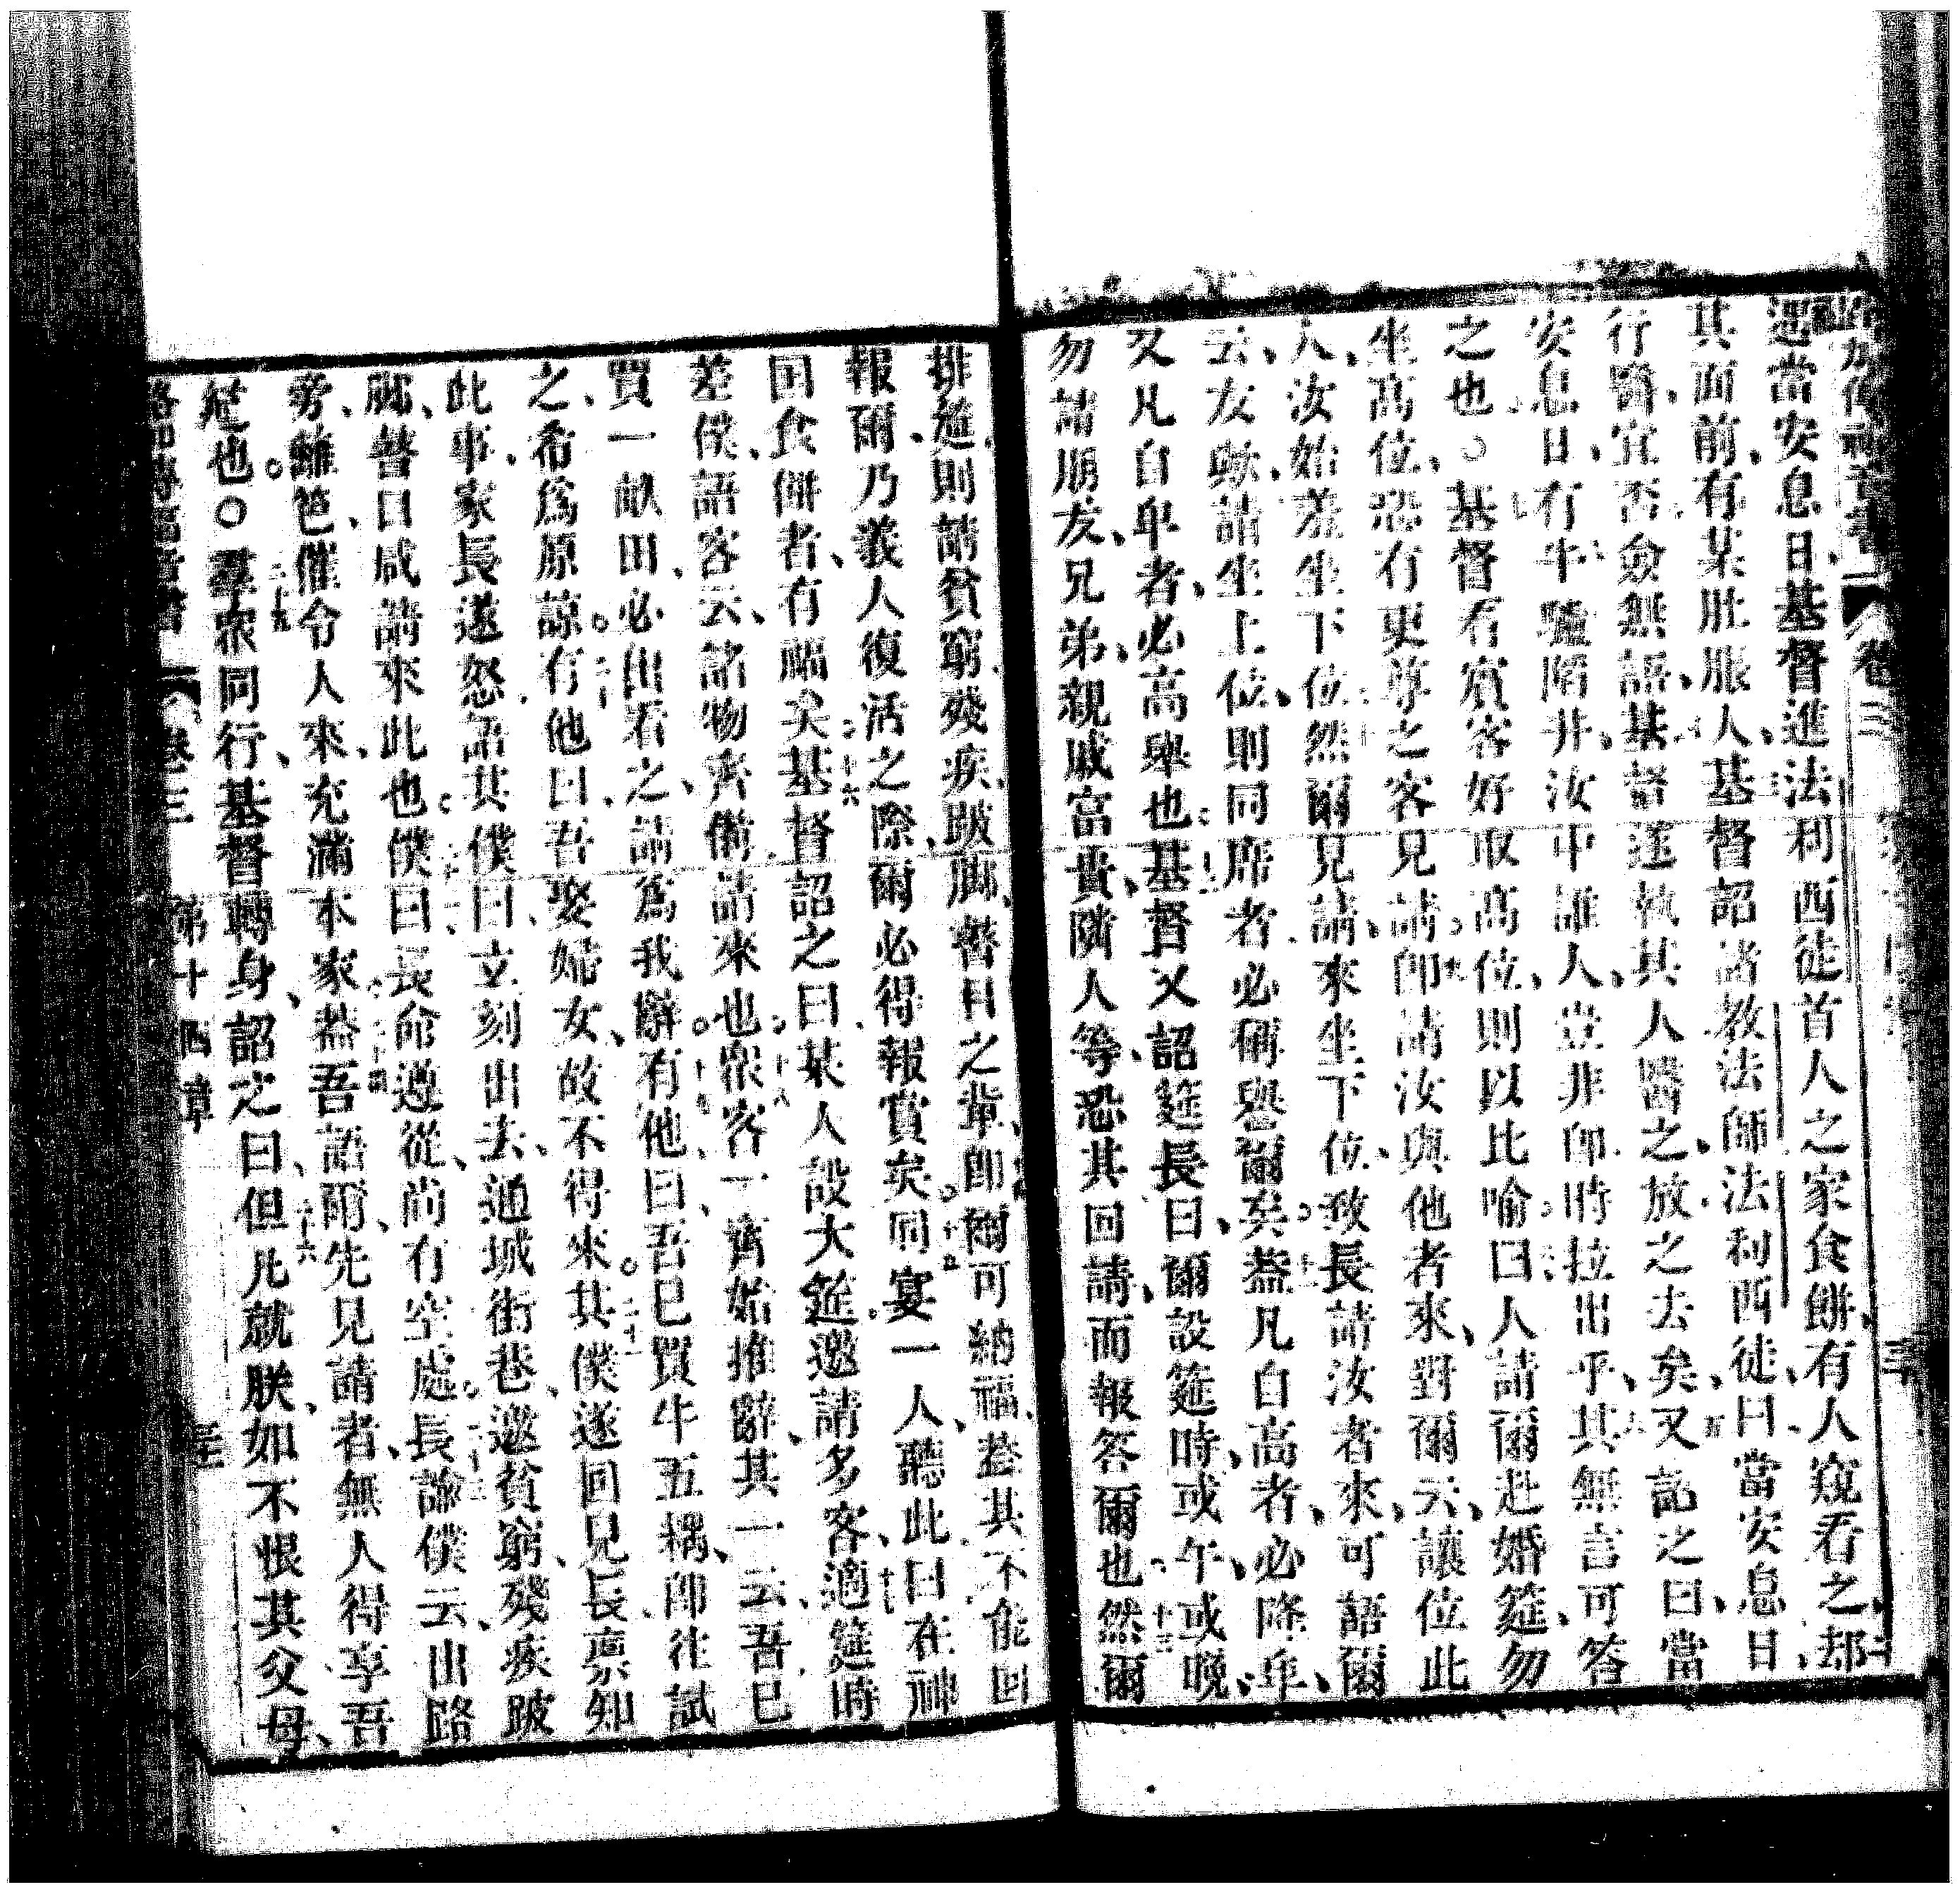 遇當安息日基督進法利西徒首人之家食餅、有人窺看之、却
其面前、有某肚脹人、基督詔諸教法師法利西徒曰、當安息日、
行醫、宜否、僉無語、基督遂執其人醫之、放之去矣、又詔之曰、當
安息日、有牛驢陷井、汝中誰人、豈非即時拉出乎、其無言可答
之也○基督看賓客好取高位、則以比喻曰、人請爾赴婚筵、勿
坐高位、恐有更尊之客見請、即請汝與他者來、對爾云、讓位此
人、汝始羞坐下位、然爾見請、來坐下位、致長請汝者來、可語爾
云、友歟、請坐上位、則同席者必稱譽爾矣、蓋凡自高者、必降卑、
又凡自卑者、必高舉也、基督又詔筵長曰、爾設筵時、或午、或晚、
勿請朋友、兄弟、親戚富貴、隣人等、恐其回請、而報答爾也、然爾
排筵、則請貧窮殘疾、跛脚、瞽目之輩、即爾可納福、蓋其不能回
報爾、乃義人復活之際、爾必得報賞矣、同宴一人、聽此曰、在神
囯食餅者、有福矣、基督詔之曰、某人設大筵、邀請多客、適筵時
差僕、語客云、諸物齊備、請來也、衆客一齊始推辭、其一云、吾已
買一畝田、必出看之、請爲我辭、有他曰、吾已買牛五耦、即往試
之、希爲原諒、有他曰、吾娶婦女、故不得來、其僕遂回見長、禀知
此事、家長遂怒、語其僕曰、立刻出去、通城街巷、邀貧窮、殘疾跛
脚、瞽目咸請來此也、僕曰、長命遵從、尚有空處、長諭僕云、出路
旁、雖笆、催令人來、充滿本家、蓋吾語爾、先見請者、無人得享吾
筵也○羣衆同行、基督轉身、詔之曰、但凡就朕、如不恨其父母、
卷三 第十四章